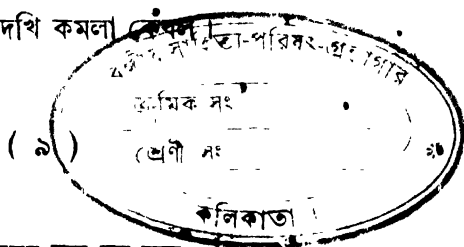 দেখি কমলা
সাহিত্য-পরিষৎ-গ্রন্থাগার
ক্রমিক সং
( ৯ )
শ্রেণী সং
কলিকাতা